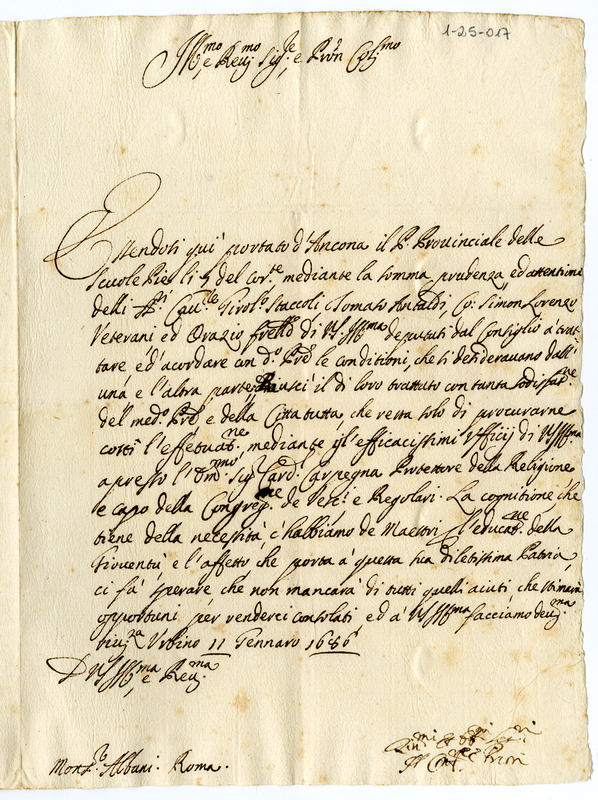 1-25-017
Ill.mo e Rev.mo Sig.re e Pron Col.mo
Essendosi qui portato d'Ancona il P. Provinciale delle
Scuole Pie li 5 del cor.te, mediante la somma prudenza, ed attentione
delli SS.ri Cav.re Girol.o Staccoli, Tomaso Antaldi, Co: Simon Lorenzo
Veterani ed Orazio frello di VS Ill.ma deputati dal Consiglio à trat-
tare ed'acordare con d.o Pre le conditioni, che si desideravano dall'
una e l'altra parte, riuscì il di loro trattato con tanta sodisfat.ne
del med.o Pre, e della Città tutta, che resta solo di procurarne
costì l'effetuat.ne, mediante gl'efficacissimi Ufficij di VS Ill.ma
apresso l'Em.mo Sig.r Card. Carpegna Protettore della Religione
e capo della Congreg.ne de Vesc.i e Regolari. La cognitione, che
tiene della necessità, c'habbiamo de Maestri p l'educat.ne della
Gioventù e l'affetto che porta à questa sua diletissima Patria,
ci fà sperare che non mancarà di tutti quelli aiuti, che stimarà
opportuni per renderci consolati, ed à VS Ill.ma facciamo deuj.ma
riu.za Urbino 11 Gennaro 1686
D VS Ill.ma e Reu.ma
Din.mi et Obb.mi Ser.ri
Il Conf.re e Priori
Mons.r Albani. Roma.